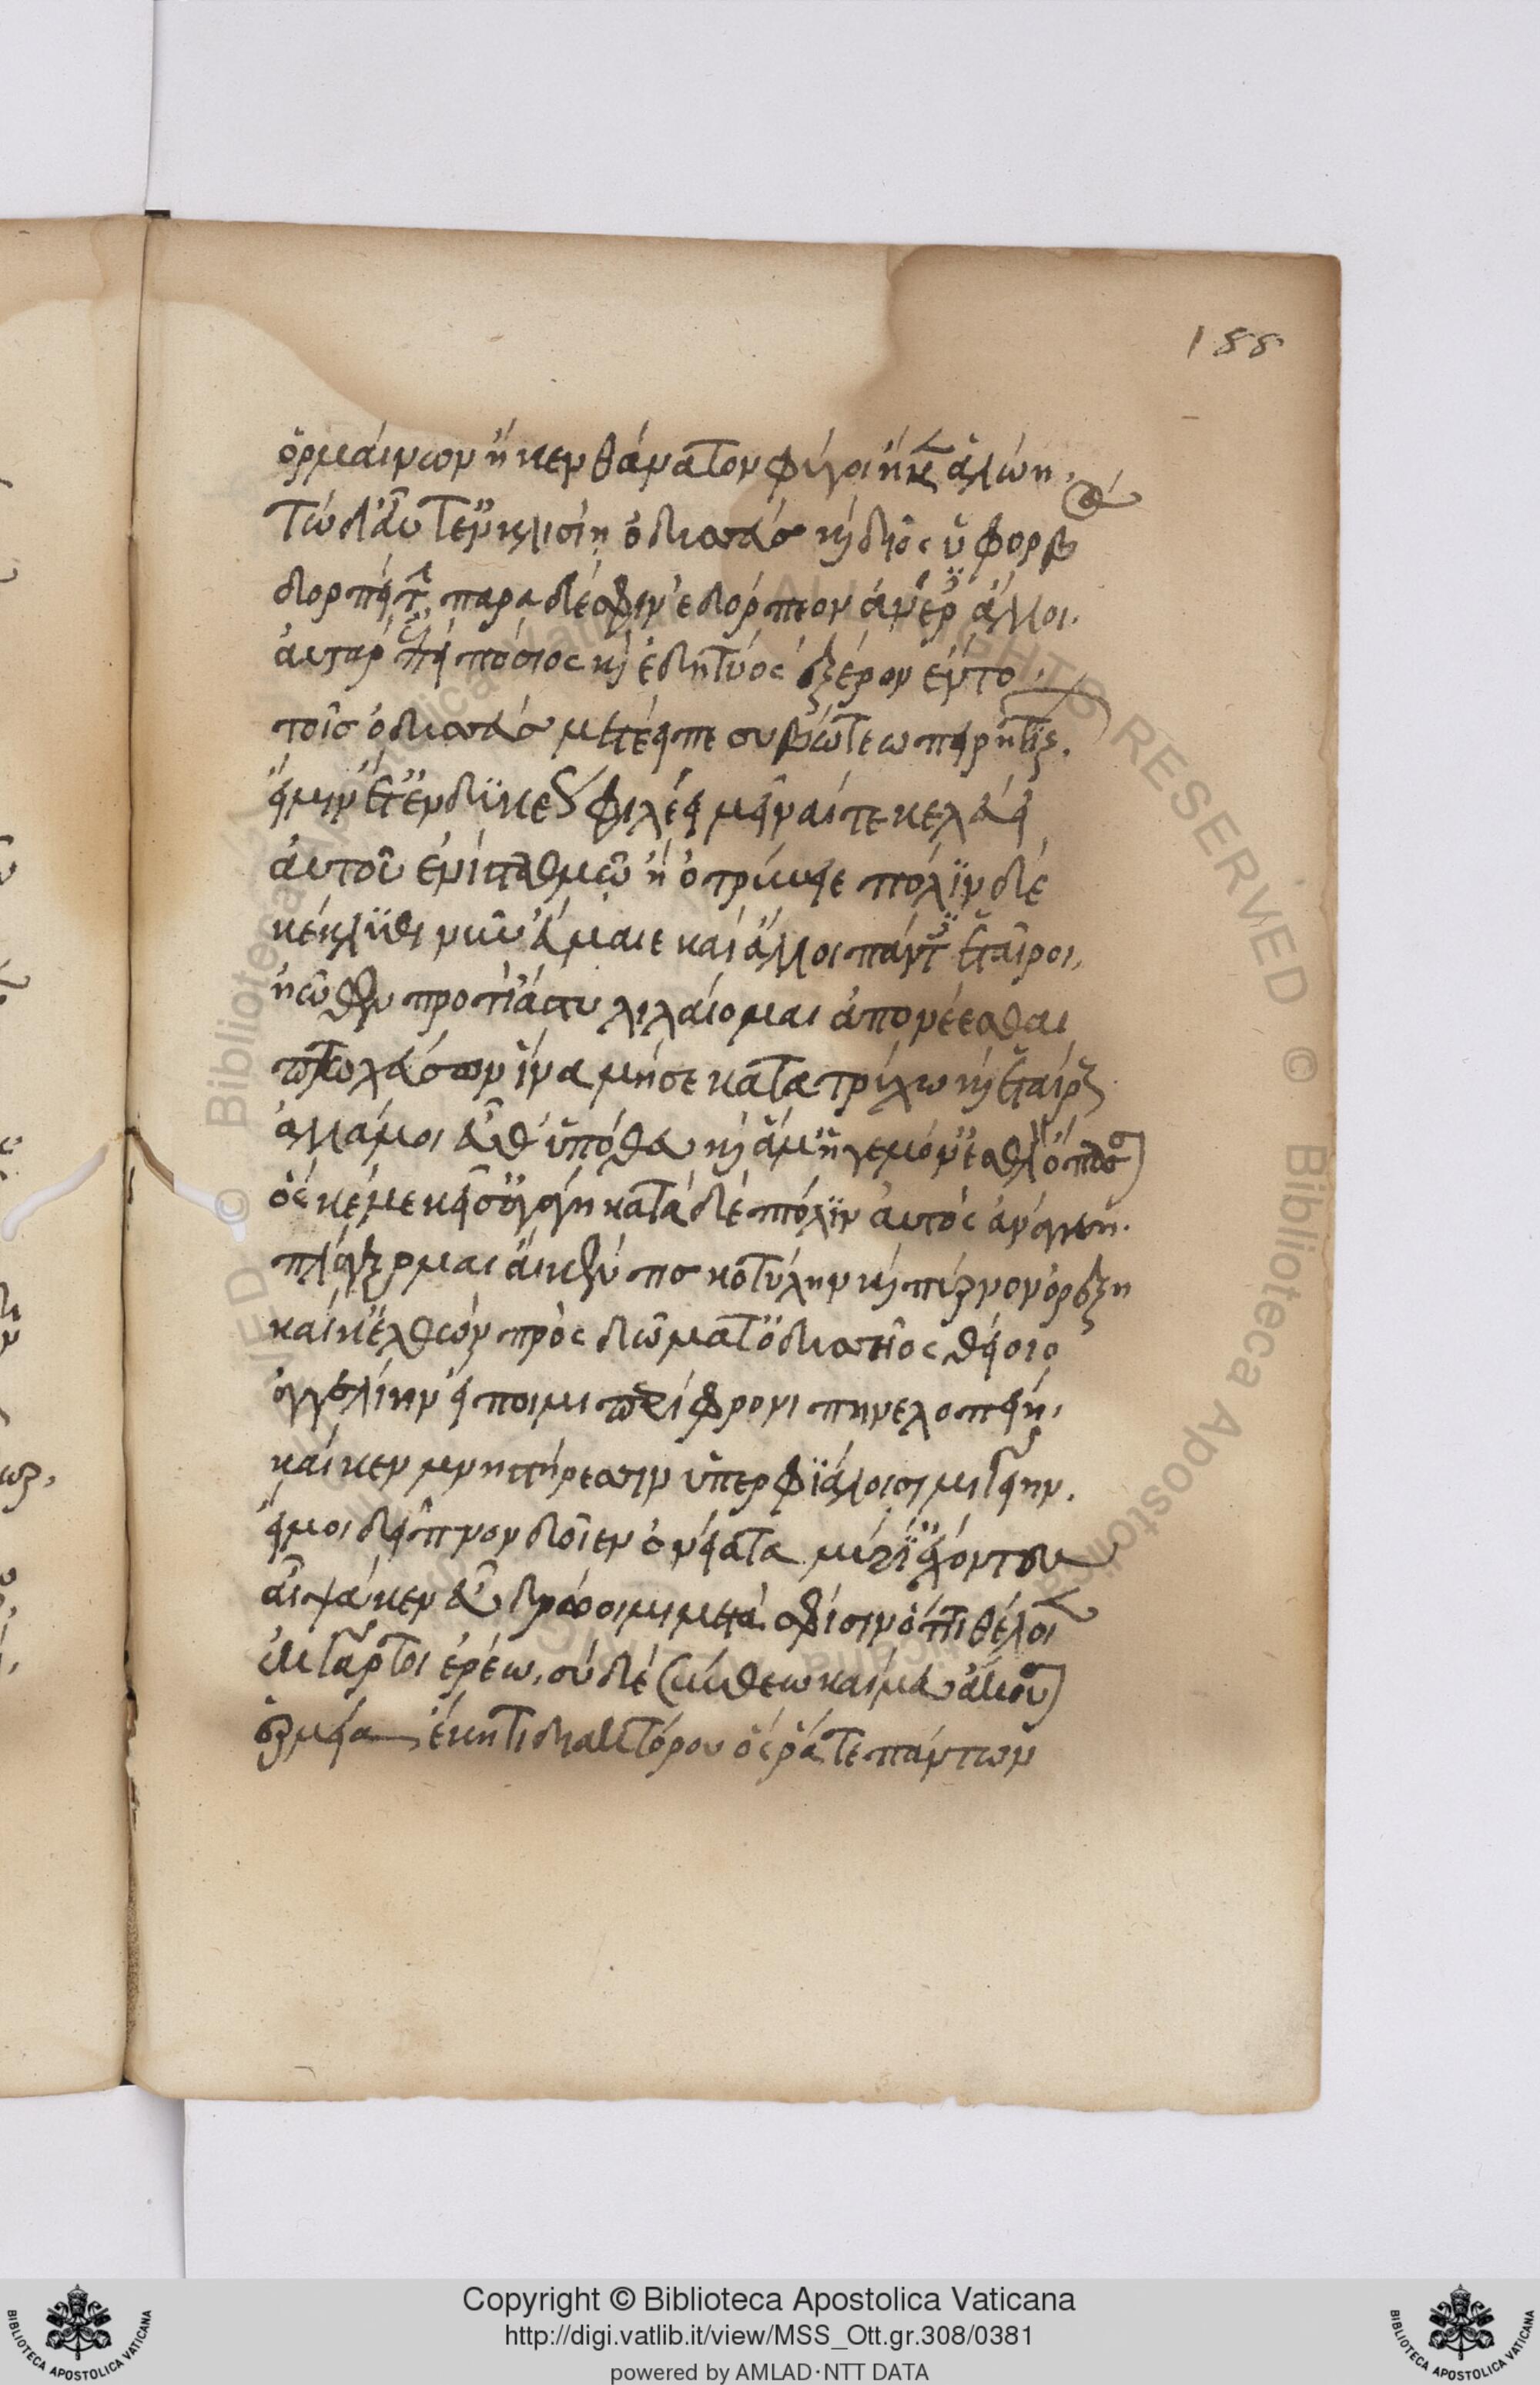 188
ὁρμαίνων ἤ κεν θάνατον φύγοι ἤ κεν ἁλώη.
Τὼ δ' αὖτ' ἐν κλισίη ὀδυσσεὺς καὶ δῖος ὑφορβὸς
δορπείτην. παρὰ δέ σφιν ἐδόρπεον ἀνέρες ἄλλοι.
αὐτὰρ ἐπεὶ πόσιος καὶ ἐδητύος ἐξ ἔρον ἕντο.
τοῖς ὀδυσσεὺς μετέειπε συβώτεω πειρητίζων.
εἴ μιν ἔτ' ἐνδϋκέως φιλέει μεῖναί τε κελεύει
αὐτοῦ ἐνὶ σταθμῶ ἢ ὀτρύνειε πόλϊν δέ
κέκλϋθι νῦν εὔμαιε καὶ ἄλλοι πάντες ἑταῖροι.
ἠῶθεν προτὶ ἄστυ λιλαίομαι ἀπονέεσθαι
πτωχεύσων ἵνα μή σε κατατρύχω καὶ ἑταίρους
ἀλλά μοι εὖ θ' ὑπόθευ καὶ ἅμ' ἡγεμόν' ἐσθλὸν ὄπασσον
ὅς κέ με κεῖσ' ἀγάγη κατὰ δὲ πτόλϊν αὐτὸς ἀνάγκη.
πλάγξομαι αἴ κέν τις κοτύλην καὶ πύρνον ὀρέξη
καί κ' ἐλθὼν πρὸς δῶματ' ὀδυσσῆος θείοιο
ἀγγελίην εἴποιμι περίφρονι πηνελοπείη.
καί κεν μνηστήρεσσιν ὑπερφϊάλοισι μιγείην.
εἴ μοι δεῖπνον δοῖεν ὀνείατα μύρϊ' ἔχοντες
αἶψά κεν εὖ δρώοιμι μετὰ σφίσιν ὅττι θέλοιεν
ἐκ γάρ τοι ἐρέω. σὺ δὲ σύνθεω καί μευ ἄκουσον
ἑρμείαο ἕκητι διακτόρου ὅς ῥά τε πάντων
Copyright © Biblioteca Apostolica Vaticana
http://digi.vatlib.it/view/MSS_Ott.gr.308/0381
powered by AMLAD·NTT DATA